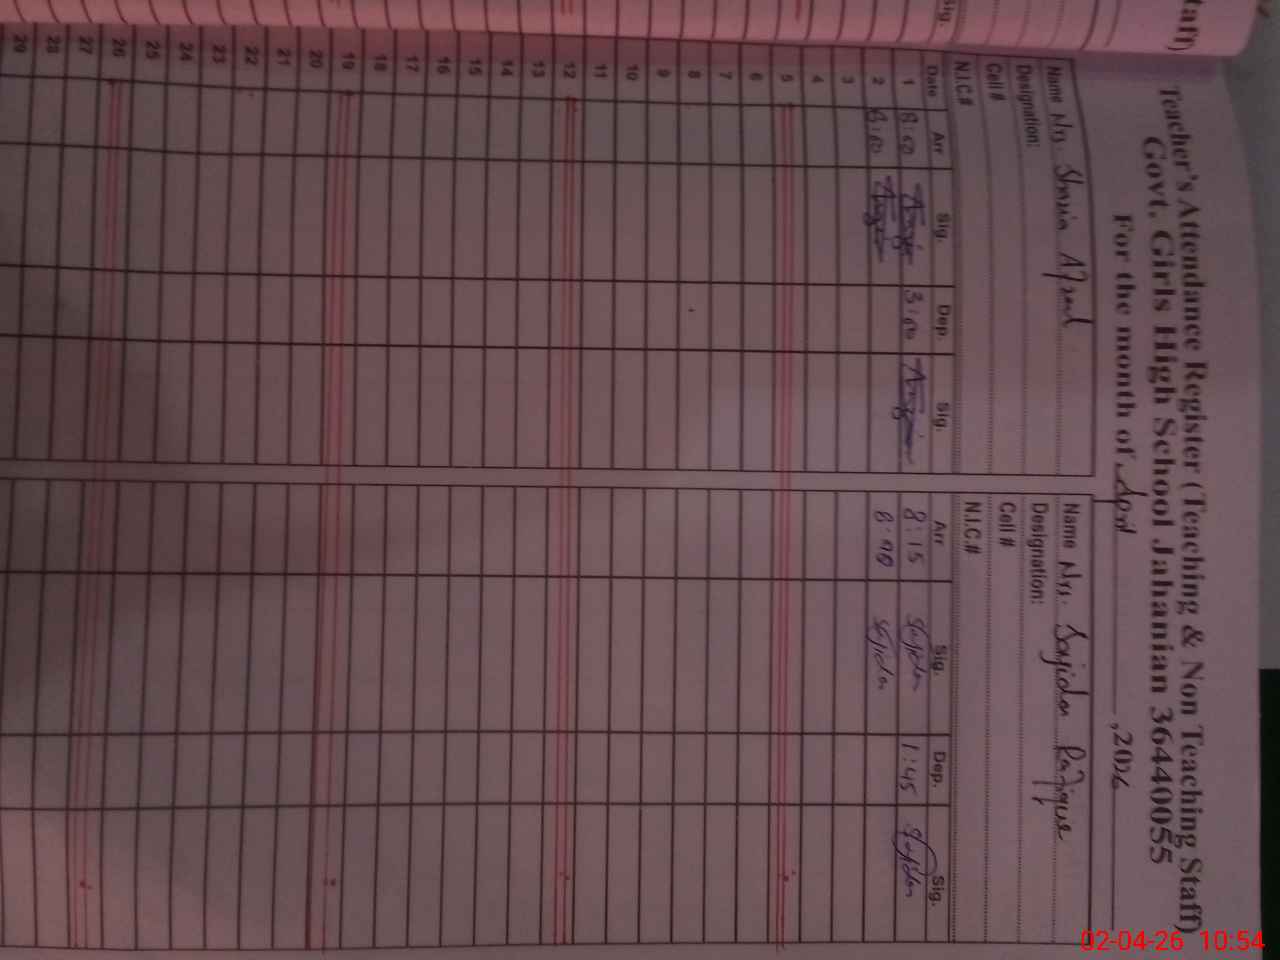 taff)
Sig.
Teacher's Attendance Register (Teaching & Non Teaching Staff)
Govt. Girls High School Jahanian 36440055
For the month of April ,2026
Name Mrs. Shazia Afzal
Designation:
Cell #
N.I.C.#
Name Mrs. Sajida Rafique
Designation:
Cell #
N.I.C.#
Date Arr Sig. Dep. Sig. Arr Sig. Dep. Sig.
1 8:00 3:00 8:15 Sajida 1:45 Sajida
2 8:00 8:00 Sajida
3
4
5
6
7
8
9
10
11
12
13
14
15
16
17
18
19
20
21
22
23
24
25
26
27
28
29
02-04-26 10:54